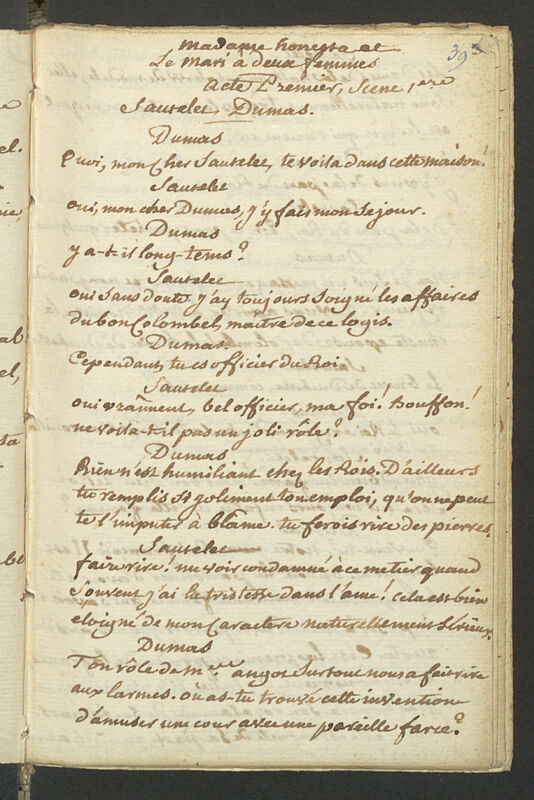 madame honesta et
Le mari à deux femmes
39
Acte Premier, Scene 1ere
Sautelec, Dumas.
Dumas
Quoi, mon cher Sautelec, te voila dans cette maison!
Sautelec
oui, mon cher Dumas, j'y fais mon Sejour.
Dumas
y a-t-il long-tems?
Sautelec
oui Sans doute. j'ay toujours Soigné les affaires
du bon Colombel, maitre de ce logis.
Dumas.
Cependant, tu es officier du Roi
Sautelec
oui vraiment, bel officier, ma foi! Bouffon!
ne voila-t-il pas un joli rôle?
Dumas
Rien n'est humiliant chez les Rois. D'ailleurs
tu remplis Si joliment ton emploi, qu'on ne peut
te l'imputer à blâme. tu ferois rire des pierres.
Sautelec
faire rire! me voir condamné à ce metier quand
Souvent j'ai la tristesse dans l'ame! cela est bien
eloigné de mon Caractere naturellement Sérieux.
Dumas
Ton rôle de me angot Surtout nous a fait rire
aux larmes. où as-tu trouvé cette invention
d'amuser une cour avec une pareille farce?